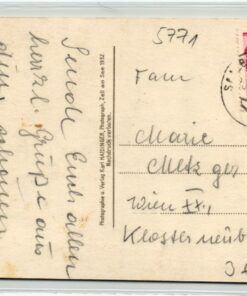 5771
Sende Euch allen
herzl. Grüße aus
Photographie u. Verlag Karl HAIDINGER, Photograph, Zell am See 1932
Nachdruck verboten.
Fam
Marie
Metzger
Wien XX.,
Klosterneub